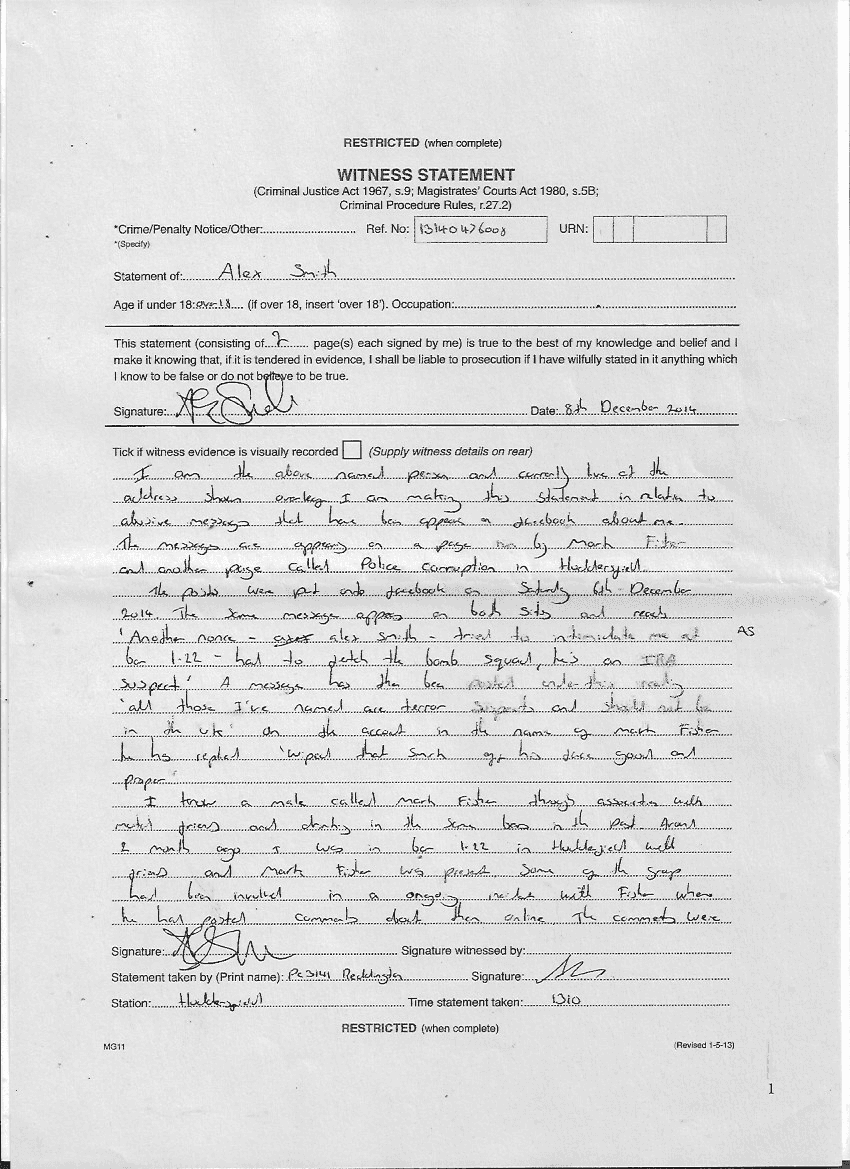 RESTRICTED (when complete)
WITNESS STATEMENT
(Criminal Justice Act 1967, s.9; Magistrates' Courts Act 1980, s.5B;
Criminal Procedure Rules, r.27.2)
*Crime/Penalty Notice/Other: Ref. No: URN:
*(Specify)
Statement of: Alex Smith
Age if under 18: over 18 (if over 18, insert 'over 18'). Occupation:
This statement (consisting of 2 page(s) each signed by me) is true to the best of my knowledge and belief and I
make it knowing that, if it is tendered in evidence, I shall be liable to prosecution if I have wilfully stated in it anything which
I know to be false or do not believe to be true.
Signature: Date: 8th December 2014
Tick if witness evidence is visually recorded (Supply witness details on rear)
I am the above named person and currently live at the
address shown overleaf I am making this statement in relation to
abusive messages that have been appear on facebook about me.
The messages are appearing on a page run by Mark Fisher
and another page called Police corruption in Huddersfield.
The posts were put onto facebook on Saturday 6th December
2014. The same message appears on both sites and reads
'Another nonce - alex smith - tried to intimidate me at
bar 1:22 - had to fetch the bomb squad, he's an IRA
AS
suspect' A message has then been posted under this reading
'all those I've named are terror suspects and should not be
in the UK' On the account in the name of Mark Fisher
he has replied 'Wiped that smirk off his face good and
proper'
I know a male called Mark Fisher through association with
mutual friends and drinking in the same bars in the past Around
2 month ago I was in bar 1:22 in Huddersfield with
friends and Mark Fisher was present Some of the group
had been involved in a ongoing incident with Fisher where
he had posted comments about them online The comments were
Signature: Signature witnessed by:
Statement taken by (Print name): PC 3141 Reddington Signature:
Station: Huddersfield Time statement taken: 1310
RESTRICTED (when complete)
MG11 (Revised 1-5-13)
1